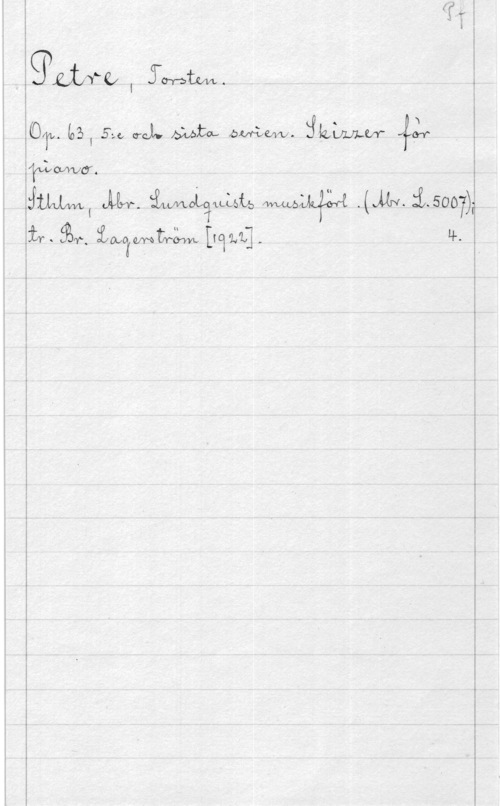 Pf
Petre, Torsten.
Op. 63, 5:e och sista serien. Skizzer för
piano.
Sthlm, Abr. Lundquists musikförl. (Abr. L. 5007);
tr. Br. Lagerström [1922]. 4.